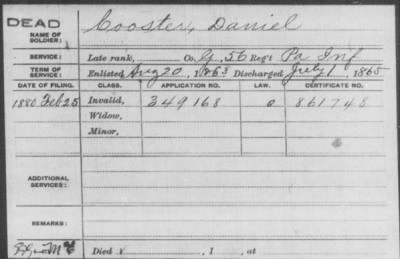 DEAD
NAME OF SOLDIER: Cooster, Daniel
SERVICE: Late rank, Co. G, 56 Reg't Pa Inf
TERM OF SERVICE: Enlisted Aug 20, 1863 Discharged July 1, 1865
DATE OF FILING. CLASS. APPLICATION NO. LAW. CERTIFICATE NO.
1880 Feb 25 Invalid, 349168 861748
Widow,
Minor,
ADDITIONAL SERVICES:
REMARKS:
Died , 1 , at